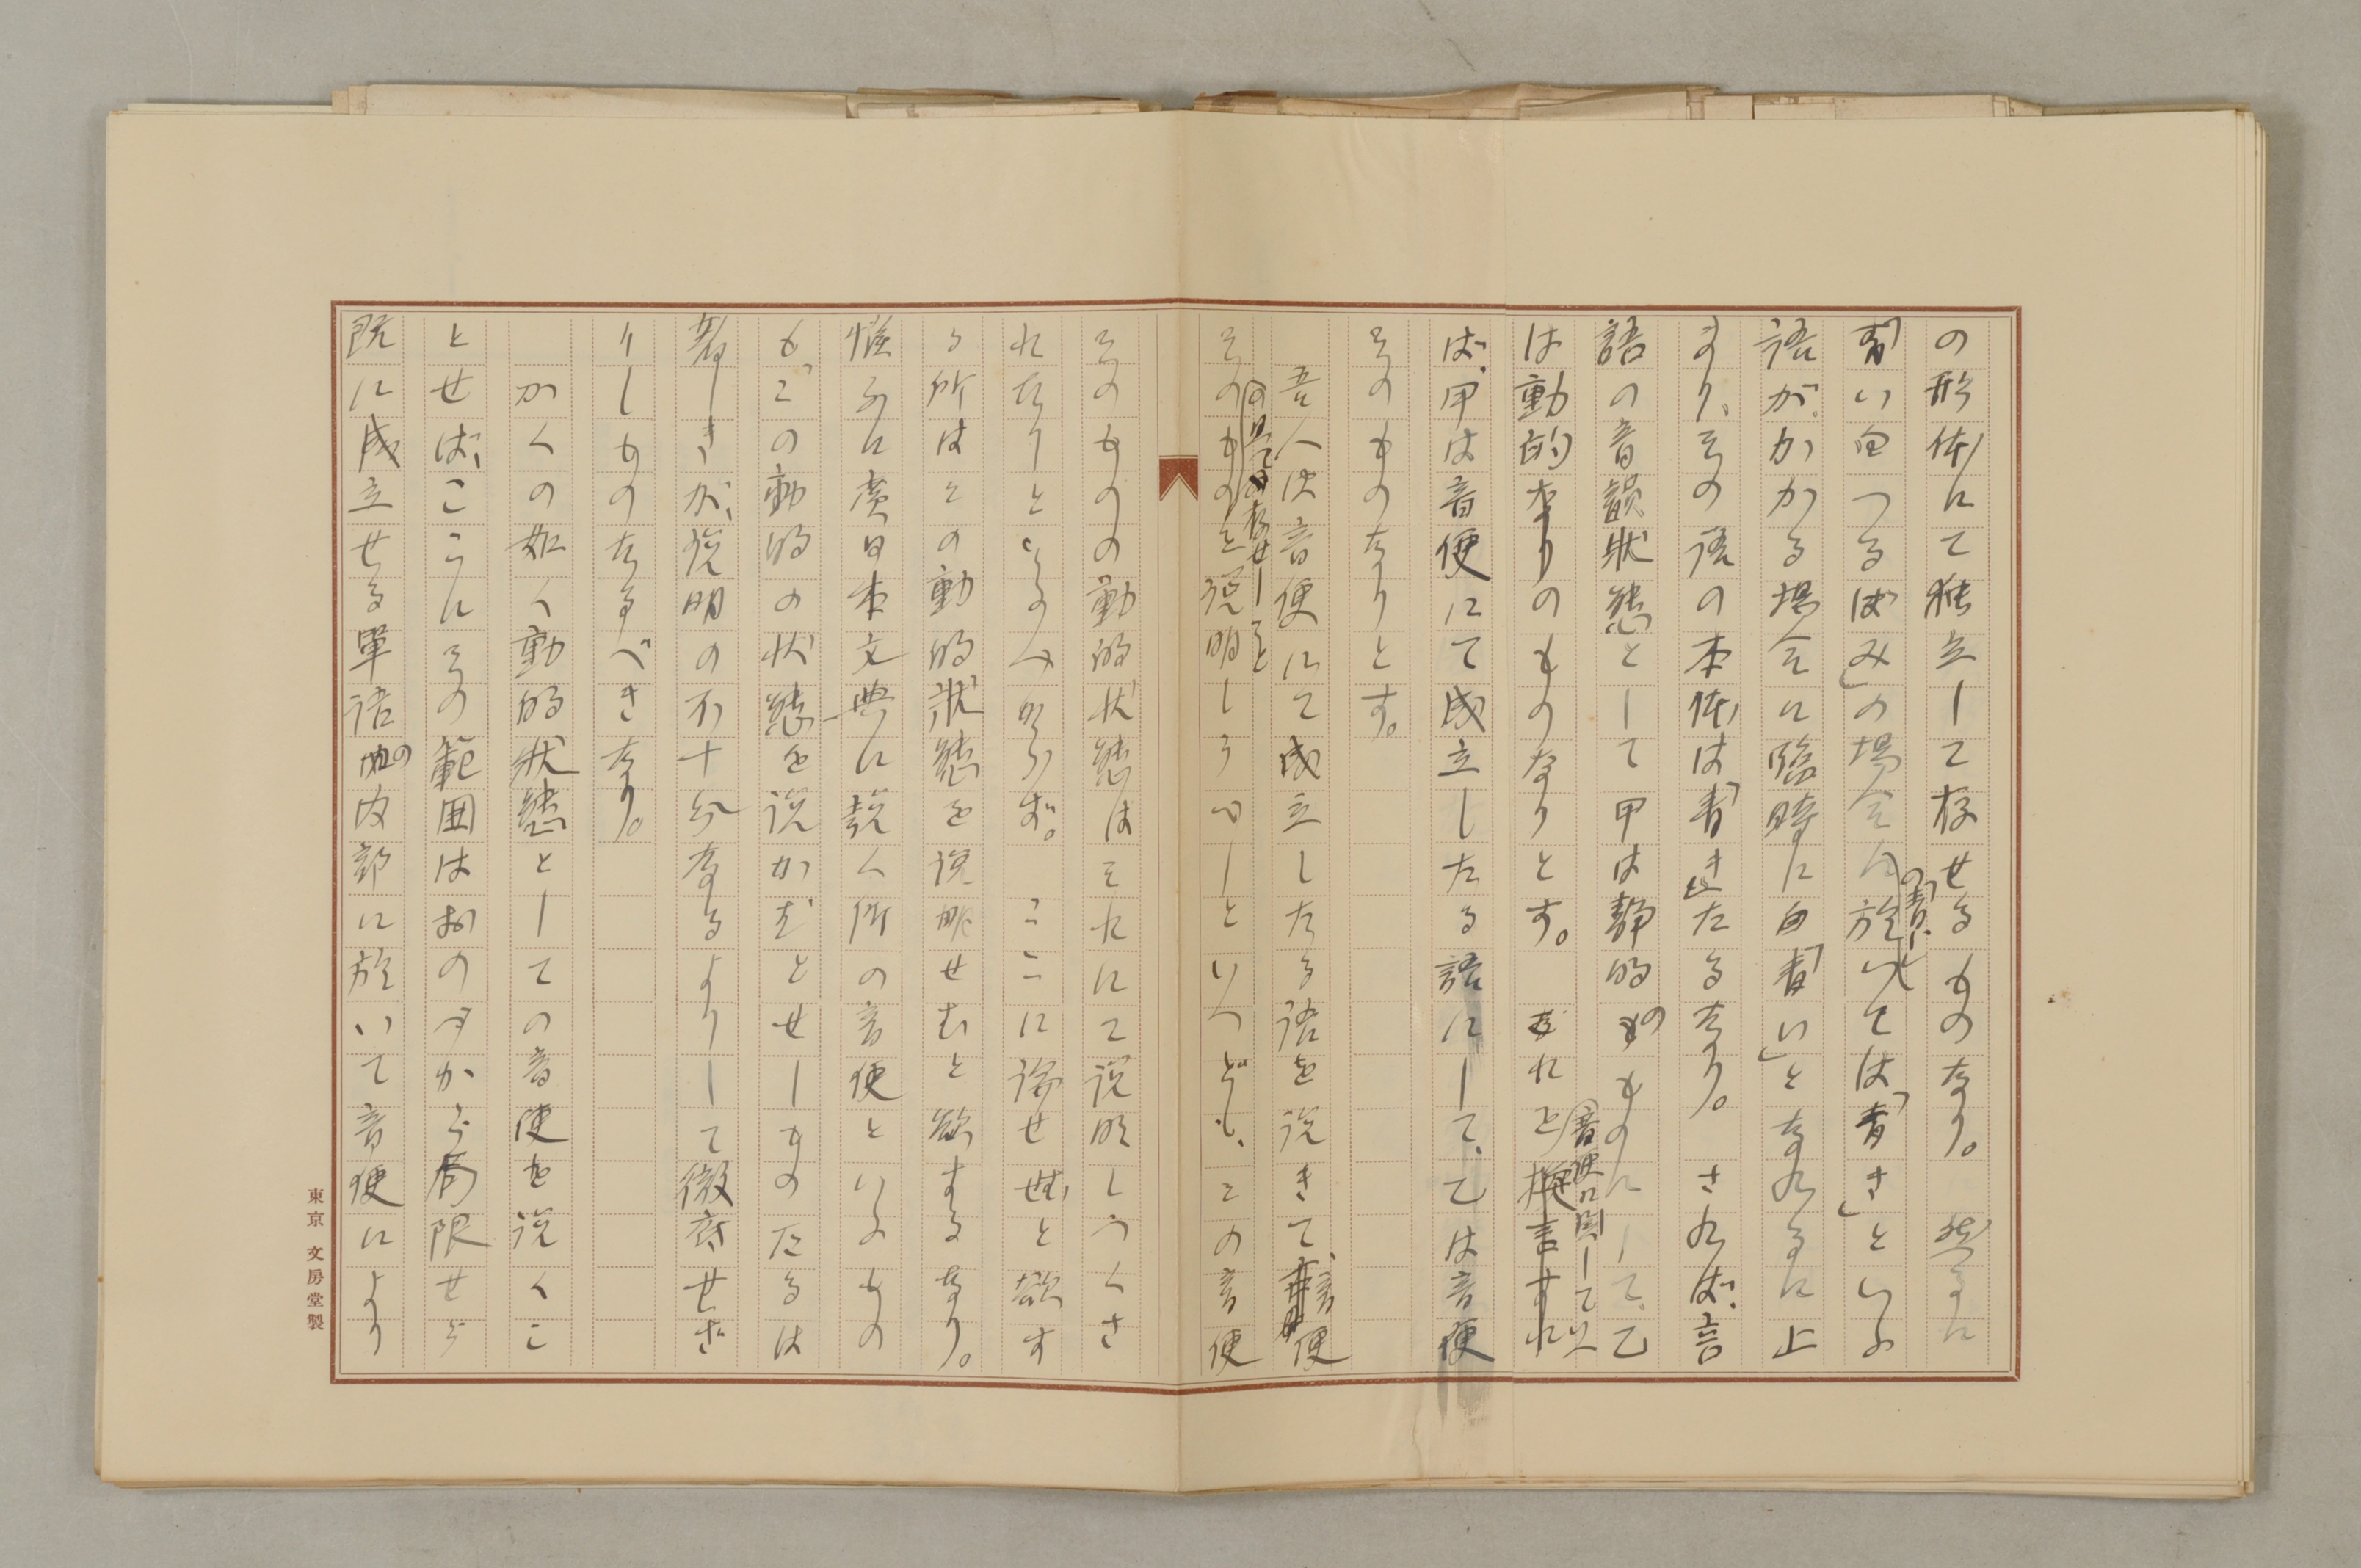 の形体にて独立して存せるものなり。然るに
「青い田つるばみ」の場合の「青い」に於いては「青き」といふ
語が、かかる場合に臨時に由「青い」となれるに止
まり、その語の本体は「青き」たるなり。されば、言
語の音韻状態として甲は静的のものにして、乙
は動的なりのものなりとす。されを音便に関して換言すれ
ば、甲は音便にて成立したる語にして、乙は音便
そのものなりとす。
吾人は音便にて成立したる語を説きて音便
そのものを説明しうべしといへども、この音便
そのものの動的状態はそれにて説明しつくさ
れたりといふべからず。ここに論ぜむと欲す
る所はその動的状態を説明せむと欲するなり。
惟ふに廣日本文典に説く所の音便といふもの
も、この動的の状態を説かむとせしものたるは
著しきが、説明の不十分なるよりして徹底せざ
りしものたるべきなり。
かくの如く動的状態としての音便を説くこ
とせば、ここにその範囲はおのづから局限せら
既に成立せる單語の内部に於いて音便により
東京 文房堂製